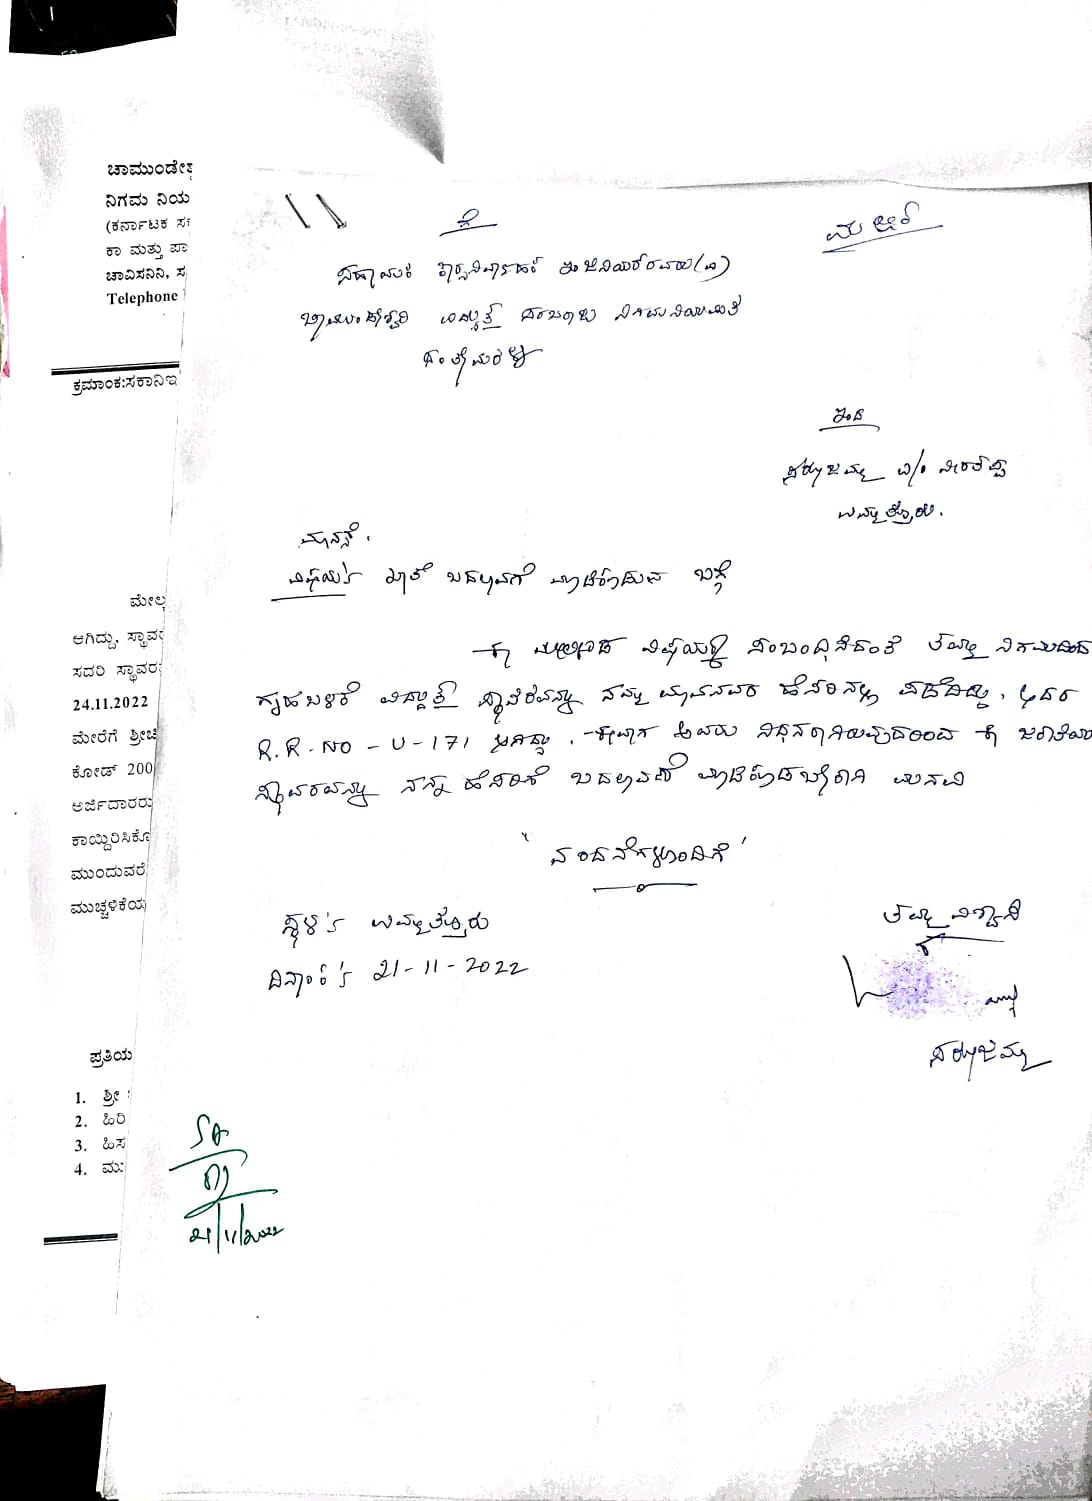 ಚಾಮುಂಡೇಶ್
ನಿಗಮ ನಿಯ
(ಕರ್ನಾಟಕ ಸ
ಕಾ ಮತ್ತು ಪಾ
ಚಾವಿಸನಿನಿ, ಸ
Telephone
ಕ್ರಮಾಂಕ:ಸಕಾನಿಇ
ಮೇಲ್ಕ
ಆಗಿದ್ದು, ಸ್ಥಾವರ
ಸದರಿ ಸ್ಥಾವರ
24.11.2022
ಮೇರೆಗೆ ಶ್ರೀ
ಕೋಡ್ 200
ಅರ್ಜಿದಾರರು
ಕಾಯ್ದಿರಿಸಿಕೊ
ಮುಂದುವರೆ
ಮುಚ್ಚಳಿಕೆಯ
ಪ್ರತಿಯ
1. ಶ್ರೀ
2. ಹಿರಿ
3. ಹಿಸ
4. ಮು
ಗೆ
ಸಹಾಯಕ ಕಾರ್ಯನಿರ್ವಾಹಕ ಇಂಜಿನಿಯರ್ ರವರು (ವಿ)
ಚಾಮುಂಡೇಶ್ವರಿ ವಿದ್ಯುತ್ ಸರಬರಾಜು ನಿಗಮ ನಿಯಮಿತ
ಸಂತೇಮರಳ್ಳಿ
ಇಂದ
ಸರೋಜಮ್ಮ
ಉಮ್ಮತ್ತೂರು.
ಮಾನ್ಯರೆ,
ವಿಷಯ: ಖಾತೆ ಬದಲಾವಣೆ ಮಾಡಿಕೊಡುವ ಬಗ್ಗೆ
ಈ ಮೇಲ್ಕಂಡ ವಿಷಯಕ್ಕೆ ಸಂಬಂಧಿಸಿದಂತೆ ತಮ್ಮ ನಿಗಮದಿಂದ
ಗೃಹಬಳಕೆ ವಿದ್ಯುತ್ ಸ್ಥಾವರವನ್ನು ನಮ್ಮ ಮಾವನವರ ಹೆಸರಿನಲ್ಲಿ ಪಡೆದಿದ್ದು, ಅದರ
R.R.NO - U-171 ಆಗಿದ್ದು. ಈವಾಗ ಅವರು ನಿಧನರಾಗಿರುವುದರಿಂದ ಈ
ಸ್ಥಾವರವನ್ನು ನನ್ನ ಹೆಸರಿಗೆ ಬದಲಾವಣೆ ಮಾಡಿಕೊಡಬೇಕಾಗಿ ಮನವಿ
' ವಂದನೆಗಳೊಂದಿಗೆ '
ಸ್ಥಳ: ಉಮ್ಮತ್ತೂರು
ದಿನಾಂಕ: 21-11-2022
ತಮ್ಮ ವಿಶ್ವಾಸಿ
ಸರೋಜಮ್ಮ
21/11/2022